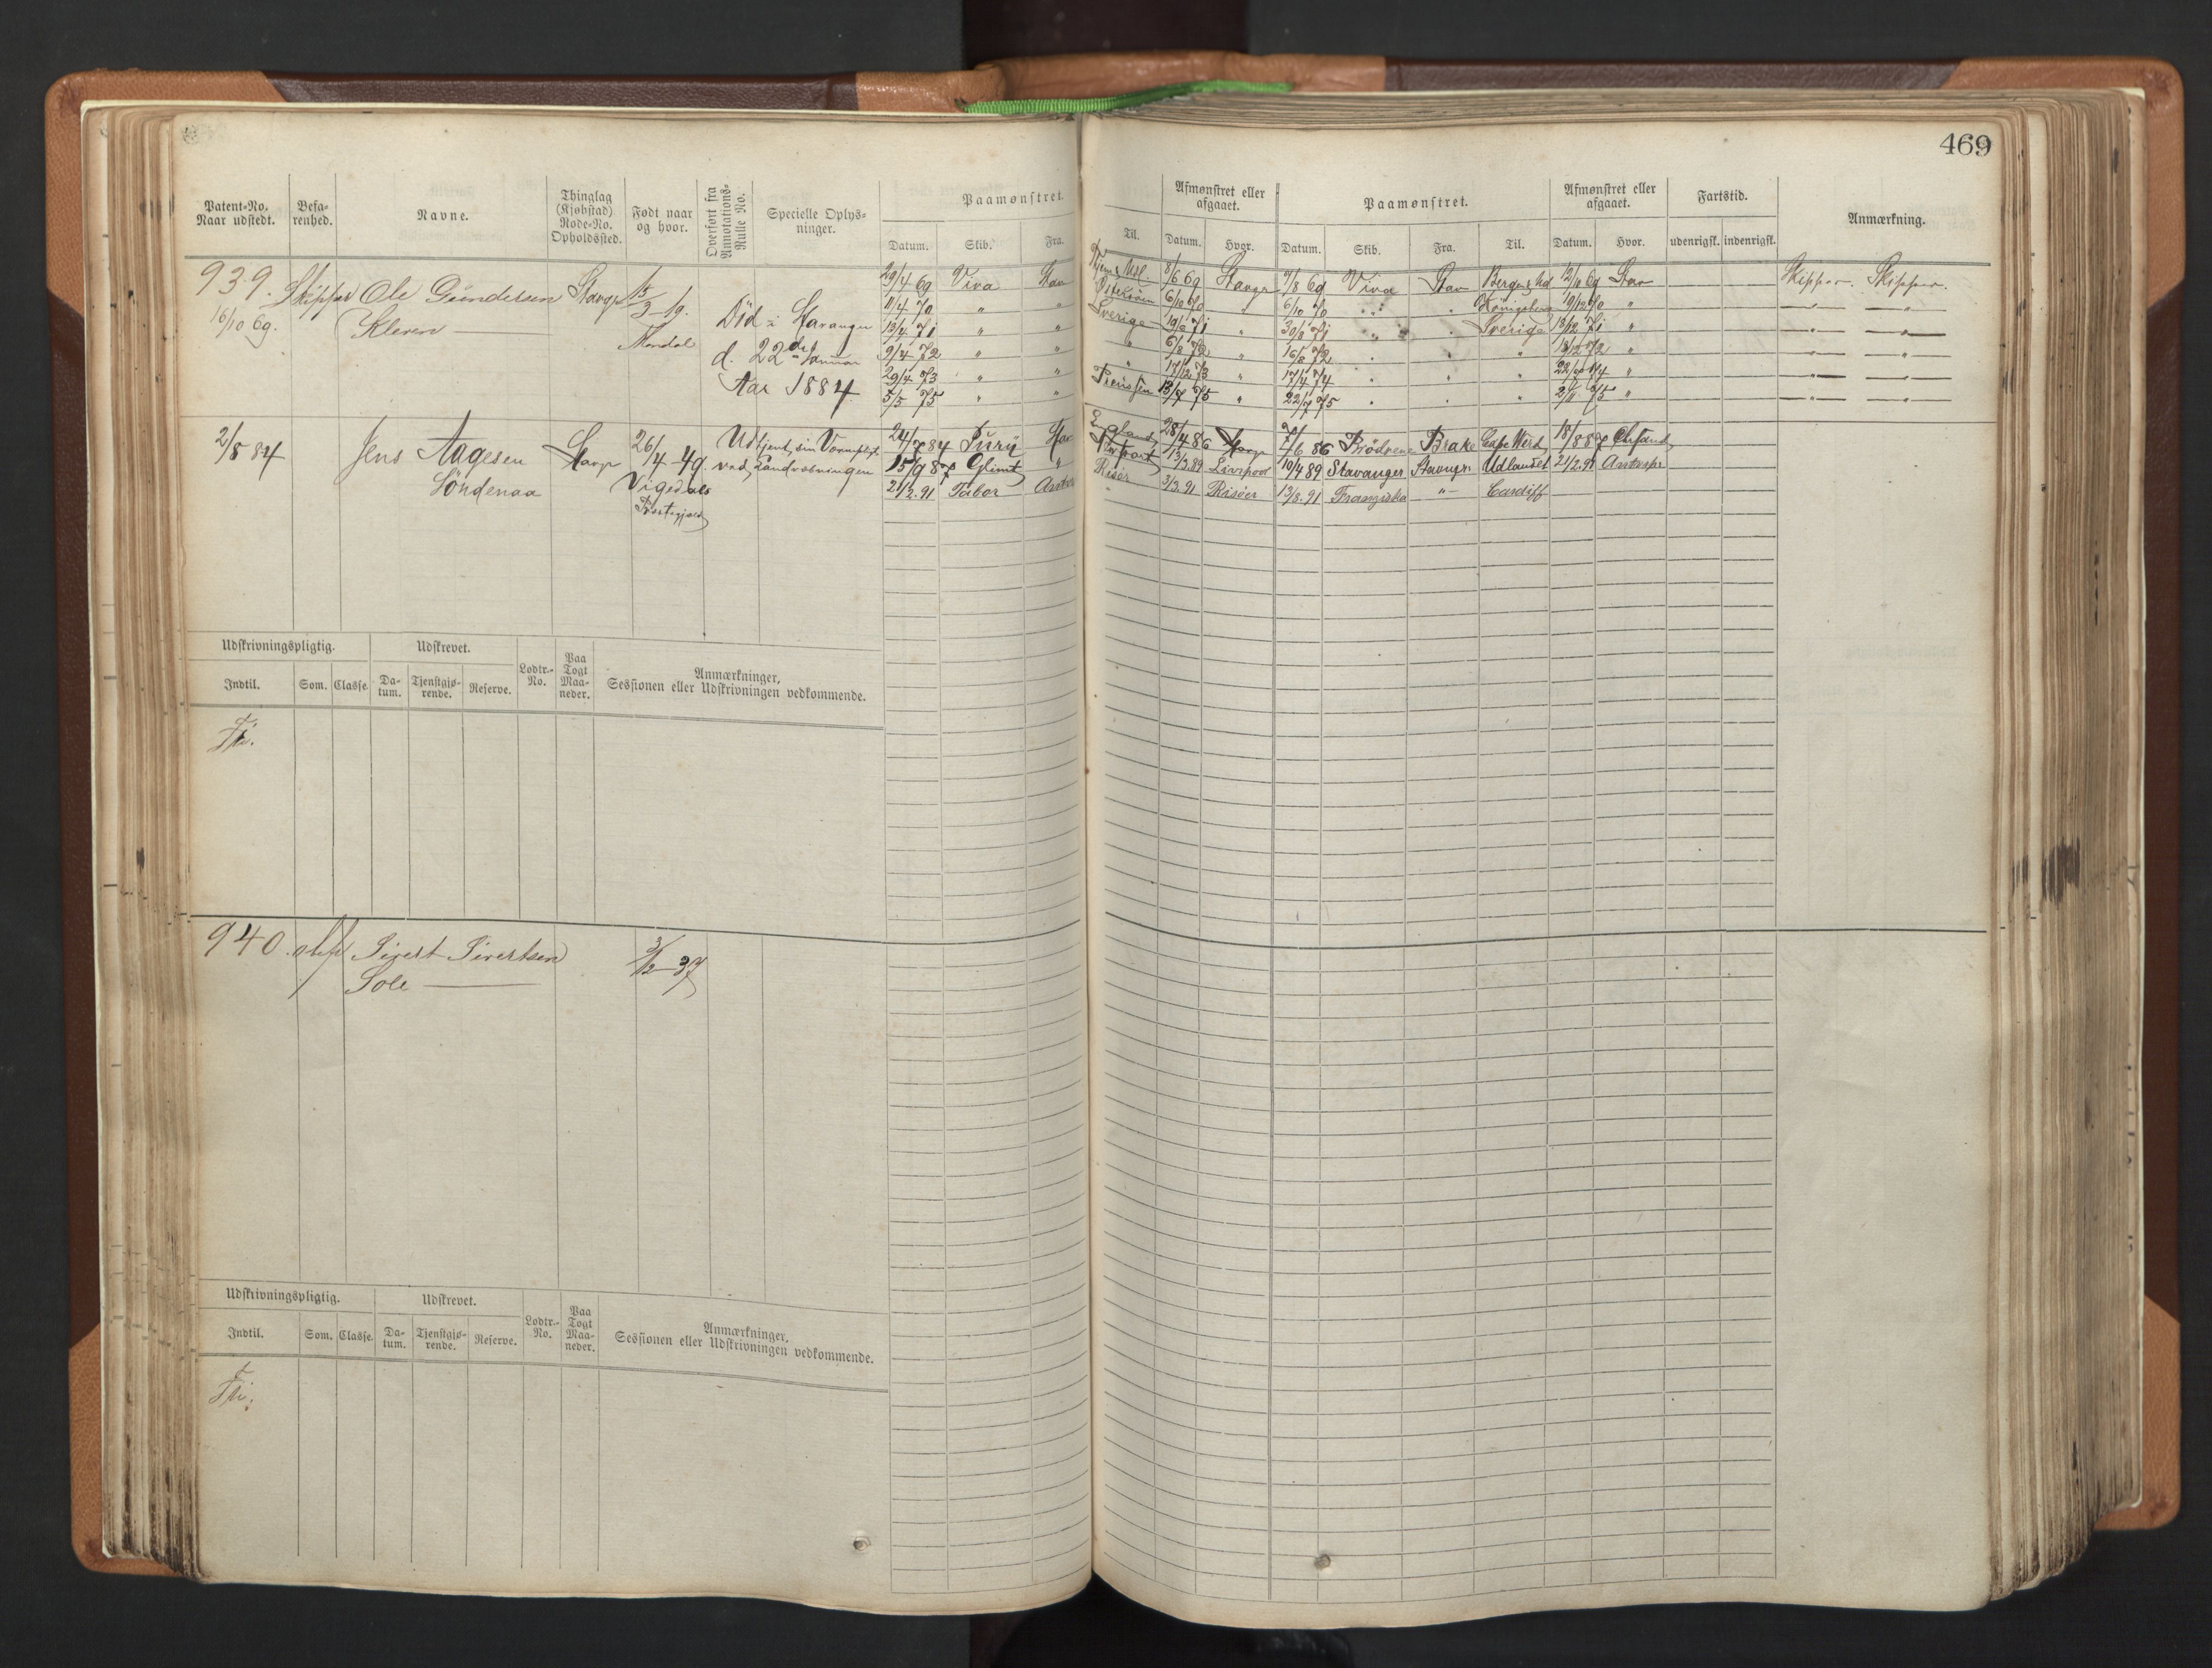 469
Patent-No. Naar udstedt. Befa-renhed. Navne. Thinglag (Kjøbstad) Rode-No. Opholdssted. Født naar og hvor. Overført fra Annotations-Rulle No. Specielle Oplys-ninger. Paamønstret.
Datum. Skib. Fra.
Afmønstret eller afgaaet. Paamønstret. Afmønstret eller afgaaet. Fartstid. Anmærkning.
Til. Datum. Hvor. Datum. Skib. Fra. Til. Datum. Hvor. udenrigsk. indenrigsk.
939. Skipper Ole Gundersen Stavgr 15/3-19. 29/4 69 Viva Stav
16/10 69. Kleven — Mandal Död i Stavanger 11/4 70 " "
13/4 71 " "
d. 22de Januar 9/4 72 " "
29/4 73 " "
Aar 1884 5/5 75 " "
8/6 69 Stavgr 7/8 69 Viva Stav 12/10 69 Stav Skipper. Skipper.
6/10 70 6/10 70 " 19/12 70 "
Sverige 19/6 71 " 30/8 71 " " Sverige 18/12 71 "
" 6/8 72 " 16/8 72 " 13/12 72 "
" 17/12 73 " 17/4 74 " "
Preussen 13/7 75 " 22/7 75 " 2/11 75 "
2/8 84 Jens Aagesen Stavgr 26/4-49. Udtjent sin Værnepligt 24/7 84 Stav
Söndenaa Vigedals ved Landvæbningen 15/9 87 Glimt "
Præstegjæld 21/2.91 Tabor
England 28/4 86 Stavgr 7/6 86 Brödrene Brake Cape Verd 18/8 87
13/3.89 Liverpool 10/4 89 Stavanger Stavngr. Udlandet 21/2.91
Risör 3/3.91 Risöer 13/8.91 Franziska —"— Cardiff
Udskrivningspligtig. Udskrevet. Lodtr.-No. Paa Togt Maa-neder. Anmærkninger,
Indtil. Som. Classe. Da-tum. Tjenstgjø-rende. Reserve. Sessionen eller Udskrivningen vedkommende.
940. Sivert Sivertsen 3/12-37
Sole —
Udskrivningspligtig. Udskrevet. Lodtr.-No. Paa Togt Maa-neder. Anmærkninger,
Indtil. Som. Classe. Da-tum. Tjenstgjø-rende. Reserve. Sessionen eller Udskrivningen vedkommende.